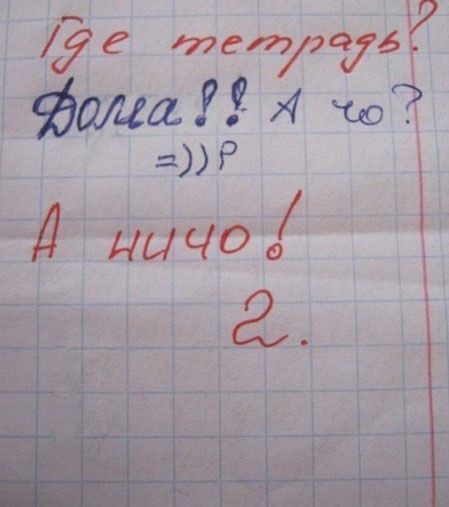 Где тетрадь?
Дома!! А чо?
=))P
А ничо!
2.